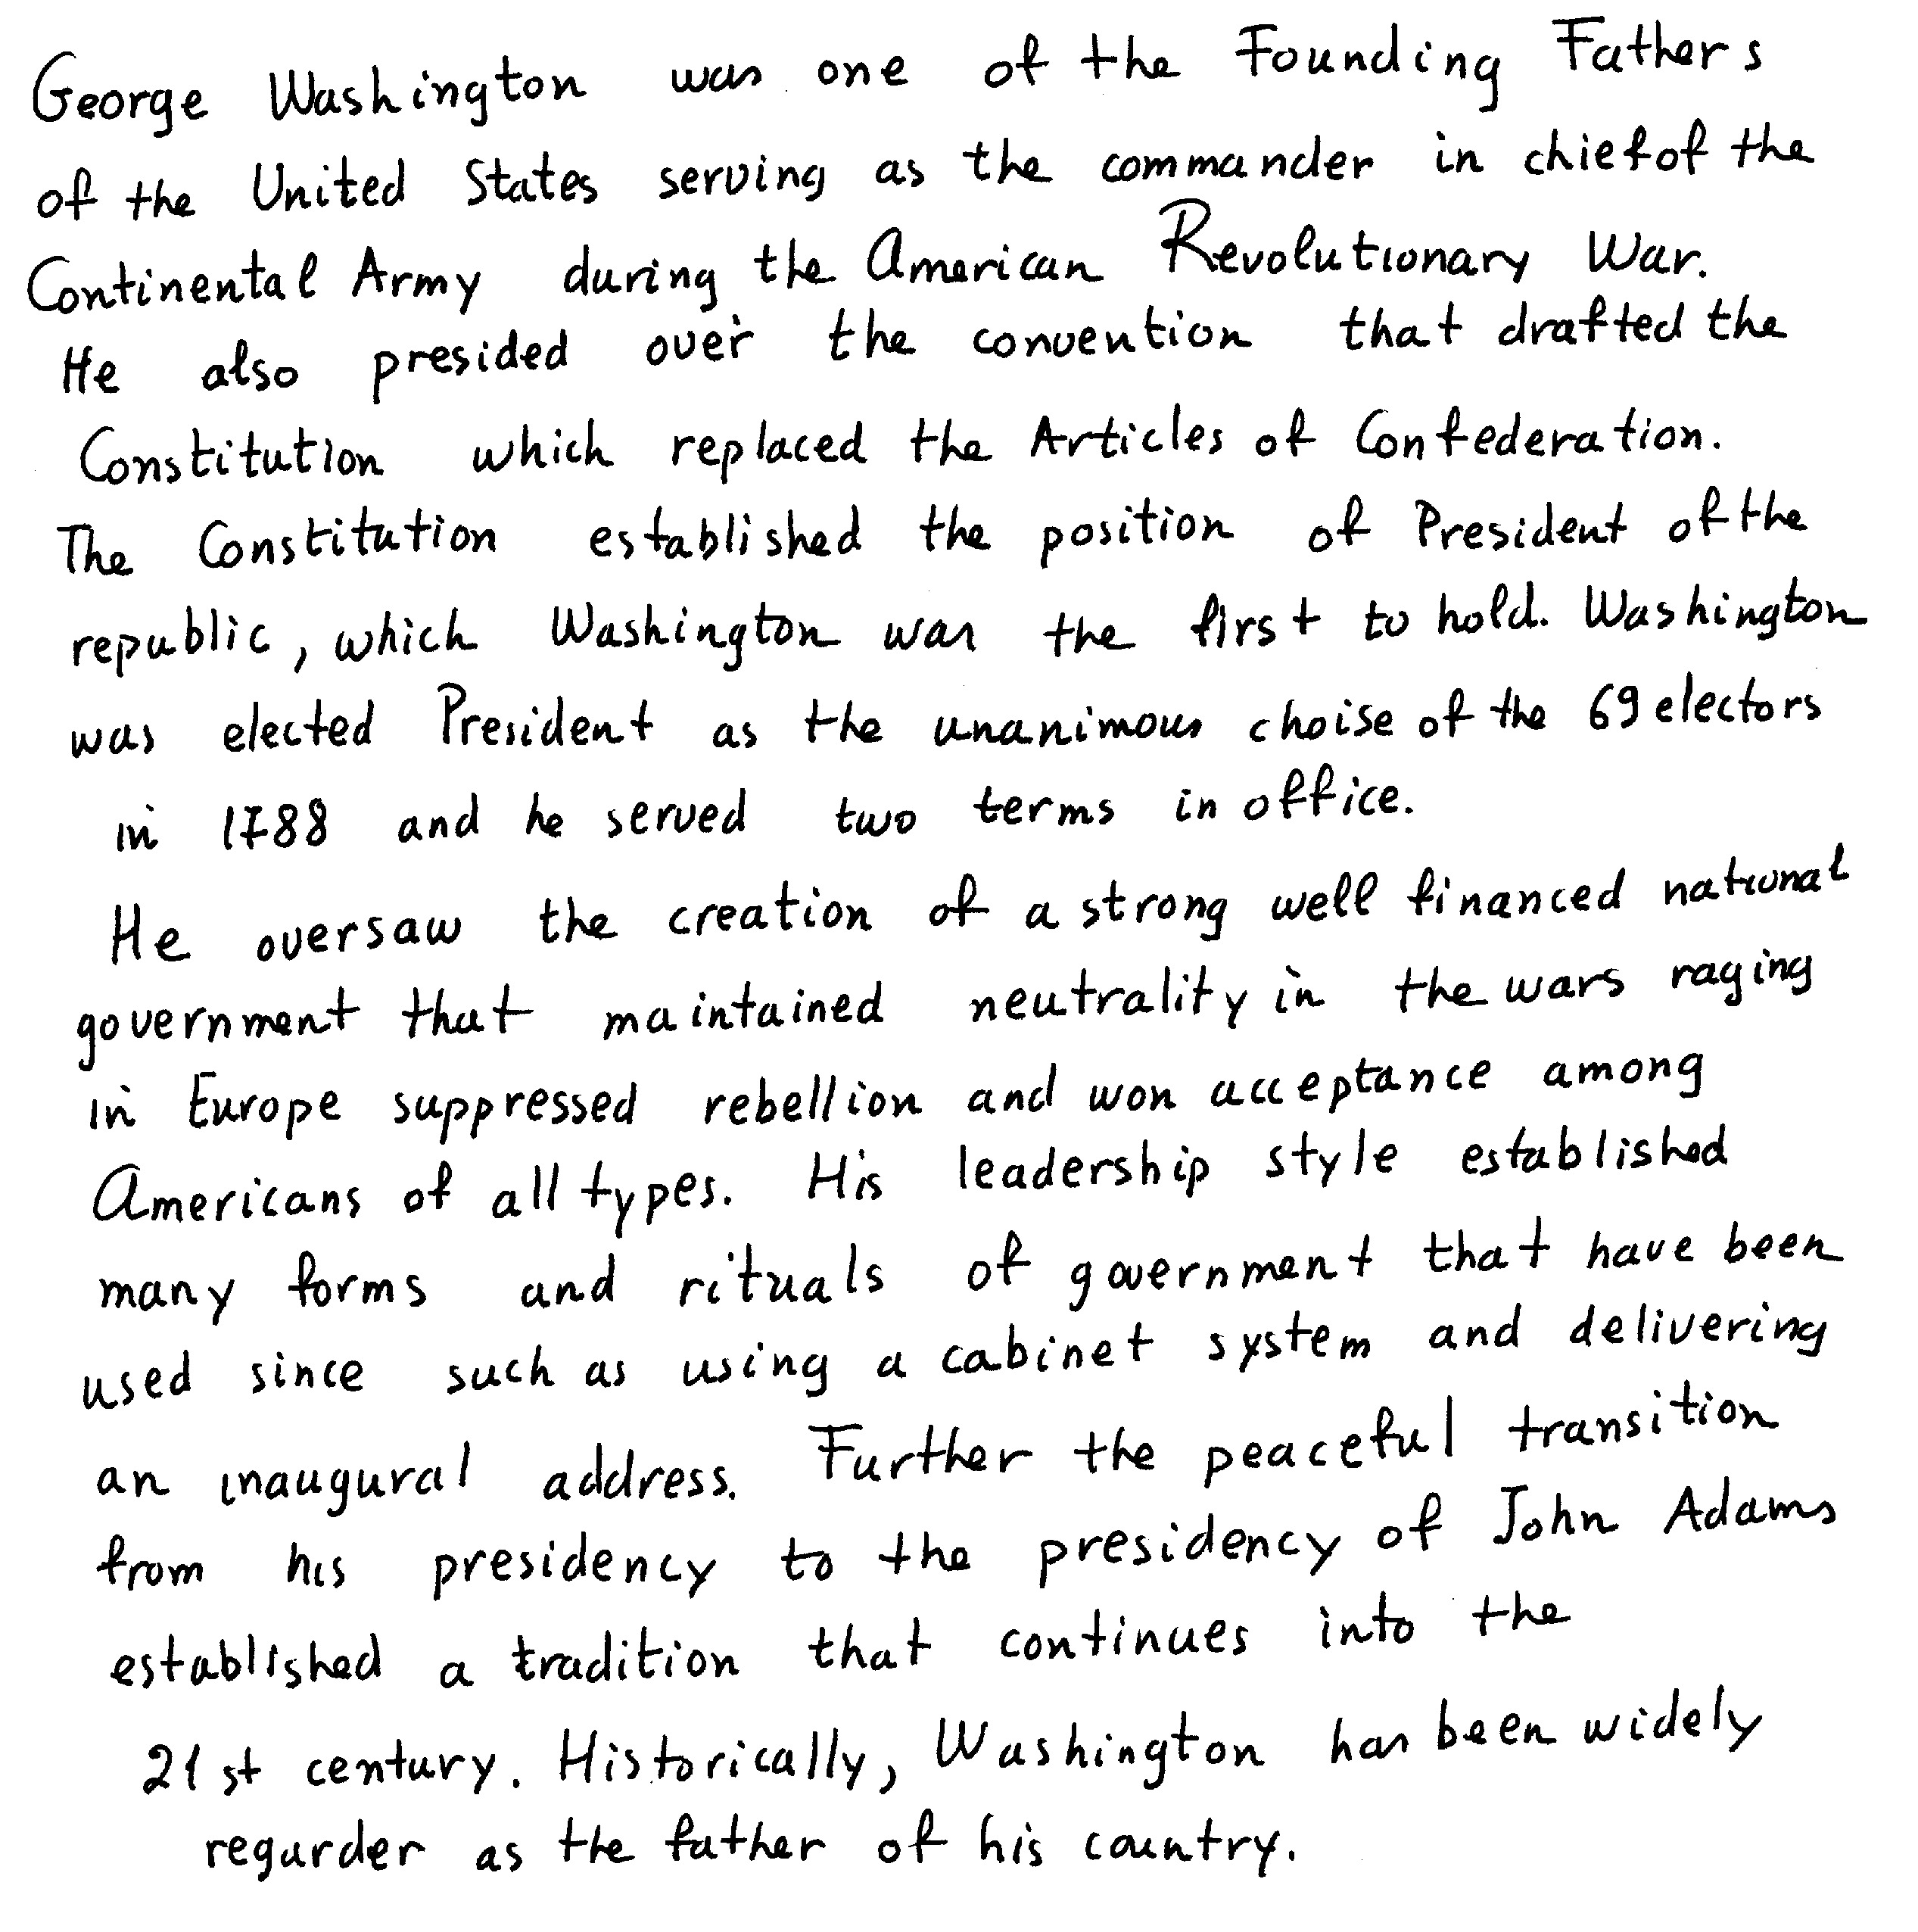 George Washington was one of the Founding Fathers
of the United States serving as the commander in chief of the
Continental Army during the American Revolutionary War.
He also presided over the convention that drafted the
Constitution which replaced the Articles of Confederation.
The Constitution established the position of President of the
republic, which Washington was the first to hold. Washington
was elected President as the unanimous choise of the 69 electors
in 1788 and he served two terms in office.
He oversaw the creation of a strong well financed national
government that maintained neutrality in the wars raging
in Europe suppressed rebellion and won acceptance among
Americans of all types. His leadership style established
many forms and rituals of government that have been
used since such as using a cabinet system and delivering
an inaugural address. Further the peaceful transition
from his presidency to the presidency of John Adams
established a tradition that continues into the
21st century. Historically, Washington has been widely
regarder as the father of his country.